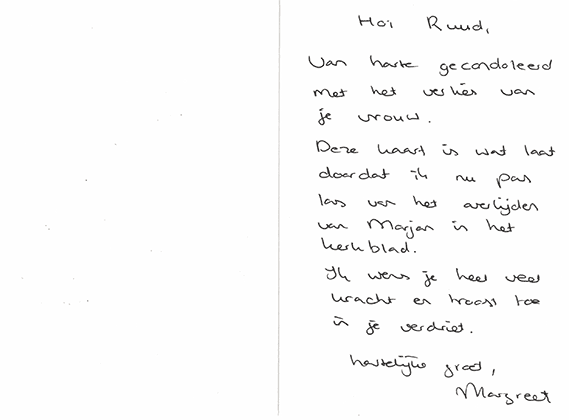 Hoi Ruud,
Van harte gecondoleerd
met het verlies van
je vrouw.
Deze kaart is wat laat
doordat ik nu pas
las van het overlijden
van Marjan in het
kerkblad.
Ik wens je heel veel
kracht en troost toe
in je verdriet.
hartelijke groet,
Margreet